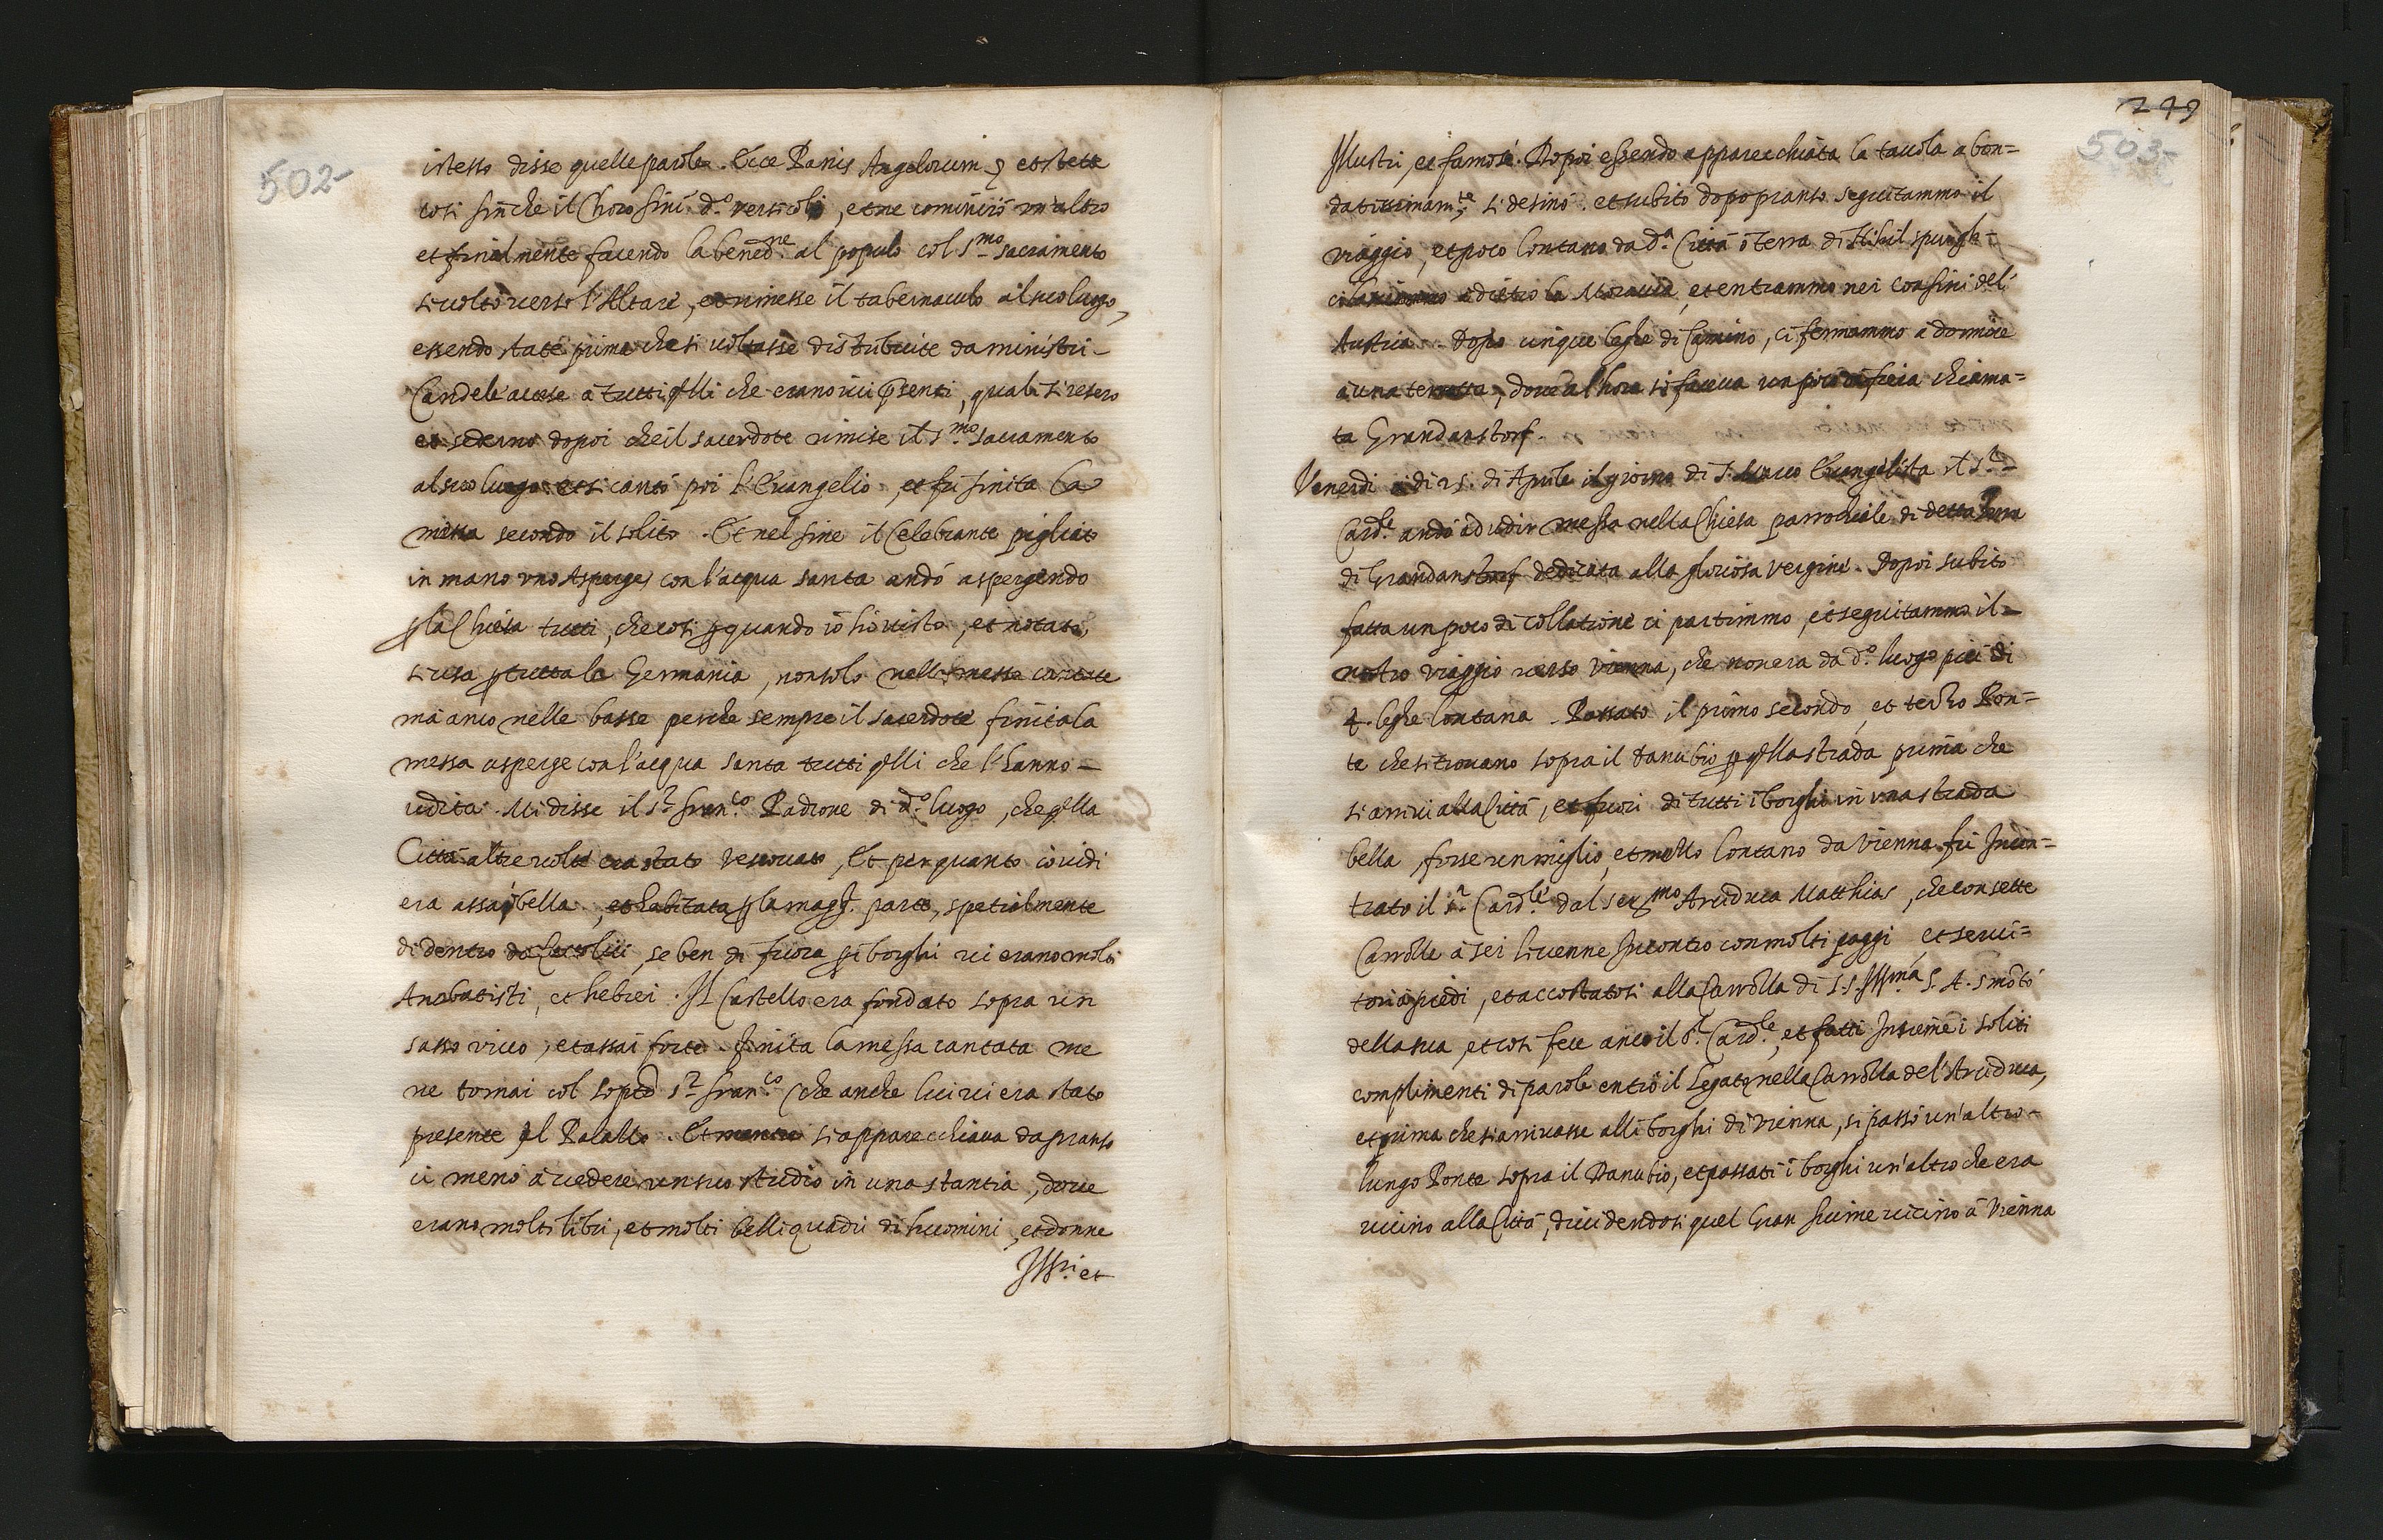 502
istesso disse quelle parole. Ecce Panis Angelorum et stette
cosi sin che il Choro finì d.º versicolo, et ne cominciò un'altro
et finalmente facendo la bened.ne al popolo col S.mo sacramento
si voltò verso l'Altare, et rimesse il tabernaculo al suo luogo,
essendo state prima che si voltasse distribuite da ministri
Candele accese à tutti q̃lli che erano ivi p̃senti, quali si resero
dopoi che il sacerdote rimise il S.mo sacramento
al suo luogo et si cantò poi l'Evangelio, et fu finita la
messa secondo il solito. Et nel fine il Celebrante pigliato
in mano uno Asperges con l'acqua santa andò aspergendo
p̃ la Chiesa tutti, che cosi p̃ quando io hò visto, et notato,
si usa p̃ tutta la Germania, non solo nelle messe cantate
mà anco nelle basse perche sempre il sacerdote finita la
messa asperge con l'acqua santa tutti q̃lli che l'hanno
udita. Mi disse il S.r Fran.co Padrone di d.º luogo, che q̃lla
Città altre volte era stato Vescovato, Et per quanto io vidi
era assai bella, et habitata p̃ la magg.r parte, spetialmente
di dentro da Cattolici, se ben di fuora p̃ i borghi vi erano molti
Anabatisti, et hebrei. Il Castello era fondato sopra un
sasso vivo, et assai forte. Finita la messa cantata me
ne tornai col sopred.º S.r Fran.co che anche lui vi era stato
presente al Palazzo. Et mentre si apparecchiava da pranso
ci menò à vedere un suo studio in una stantia, dove
erano molti libri, et molti belli quadri di huomini, et donne
Ill.ri et
249
503
Illustri, et famose. Dopoi essendo apparecchiata la tavola abon=
datissimam.te si desinò. et subito dopo pranso seguitammo il
viaggio, et poco lontano da d.ª Città ò terra di
adietro la Moravia, et entrammo nei confini del
Austria. Dopo cinque leghe di Camino, ci fermammo à dormire
à una terretta, dove al'hora si faceva un poco di fiera chiama=
ta Grandanstorf.
Venerdi à di 25. di Aprile il giorno di S. Marco Evangelista il S.r
Card.le andò ad udir messa nella Chiesa parrochiale di detta terra
di Grandanstorf dedicata alla gloriosa Vergine. Dopoi subito
fatta un poco di collatione ci partimmo, et seguitammo il
nostro viaggio verso Vienna, che non era da d.º luogo più di
4. leghe lontana. Passato il primo secondo, et terzo Pon=
te che si trovano sopra il Danubio p̃ q̃lla strada prima che
si arrivi alla Città, et fuori di tutti i borghi in una strada
bella, forse un miglio, et mezzo lontano da Vienna fù Incon=
trato il S.r Card.le dal ser.mo Arciduca Matthias, che con sette
Carrozze à sei li venne Incontro con molti paggi, et servi=
tori à piedi, et accostatosi alla Carrozza di S.S. Ill.ma S. A. smontò
della sua, et cosi fece anco il S.r Card.le, et fatti Insieme i soliti
complimenti di parole entrò il Legato nella Carrozza de l'Arciduca,
et prima che si arrivasse alli borghi di Vienna, si passò un'altro
lungo Ponte sopra il Danubio, et passati i borghi un'altro che era
vicino alla Città, dividendosi quel Gran fiume vicino à Vienna